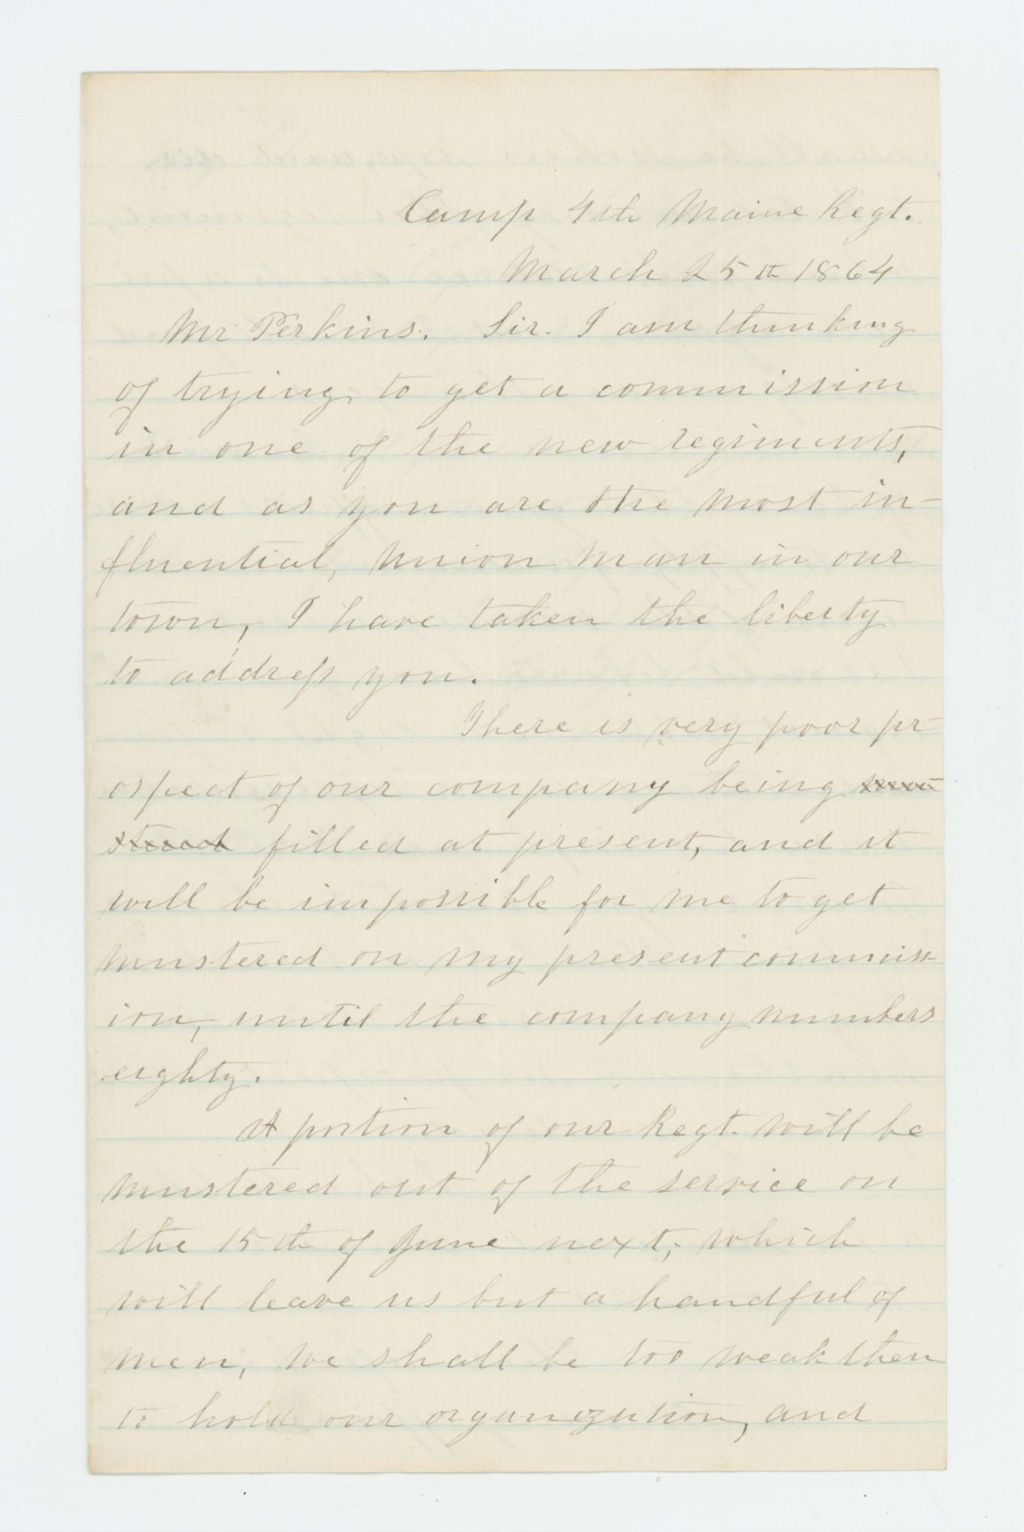 Camp 4th Maine Regt.
March 25th 1864
Mr. Perkins. Sir. I am thinking
of trying to get a commission
in one of the new regiments,
and as you are the most in-
fluential, union man in our
town, I have taken the liberty
to address you.
There is very poor pr-
ospect of our company being mu-
stered filled at present, and it
will be impossible for me to get
mustered on my present commiss-
ion, until the company numbers
eighty.
A portion of our Regt. will be
mustered out of the service on
the 15th of June next, which
will leave us but a handful of
men, we shall be too weak then
to hold our organization, and